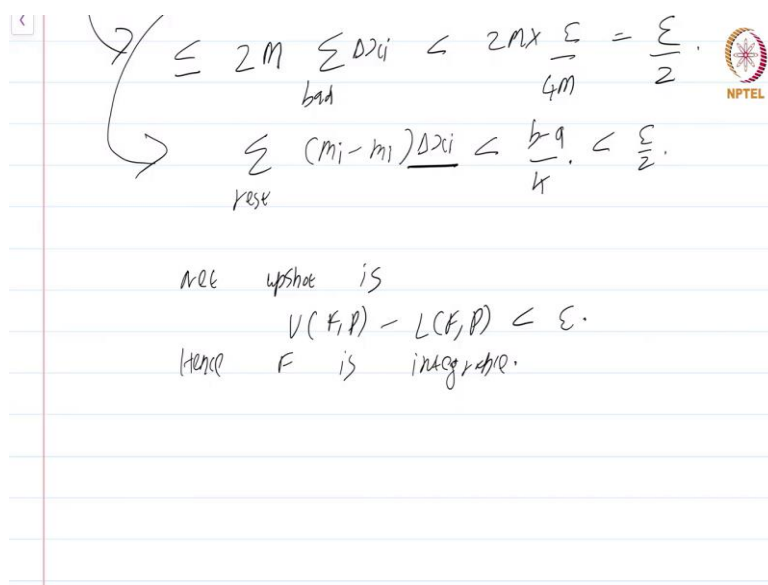 ≤ 2M Σ Δxi < 2M × ε/4M = ε/2.
bad
NPTEL
Σ (Mi - mi) Δxi < b-a/k. < ε/2.
rest
Net upshot is
U(F,P) - L(F,P) < ε.
Hence F is integrable.